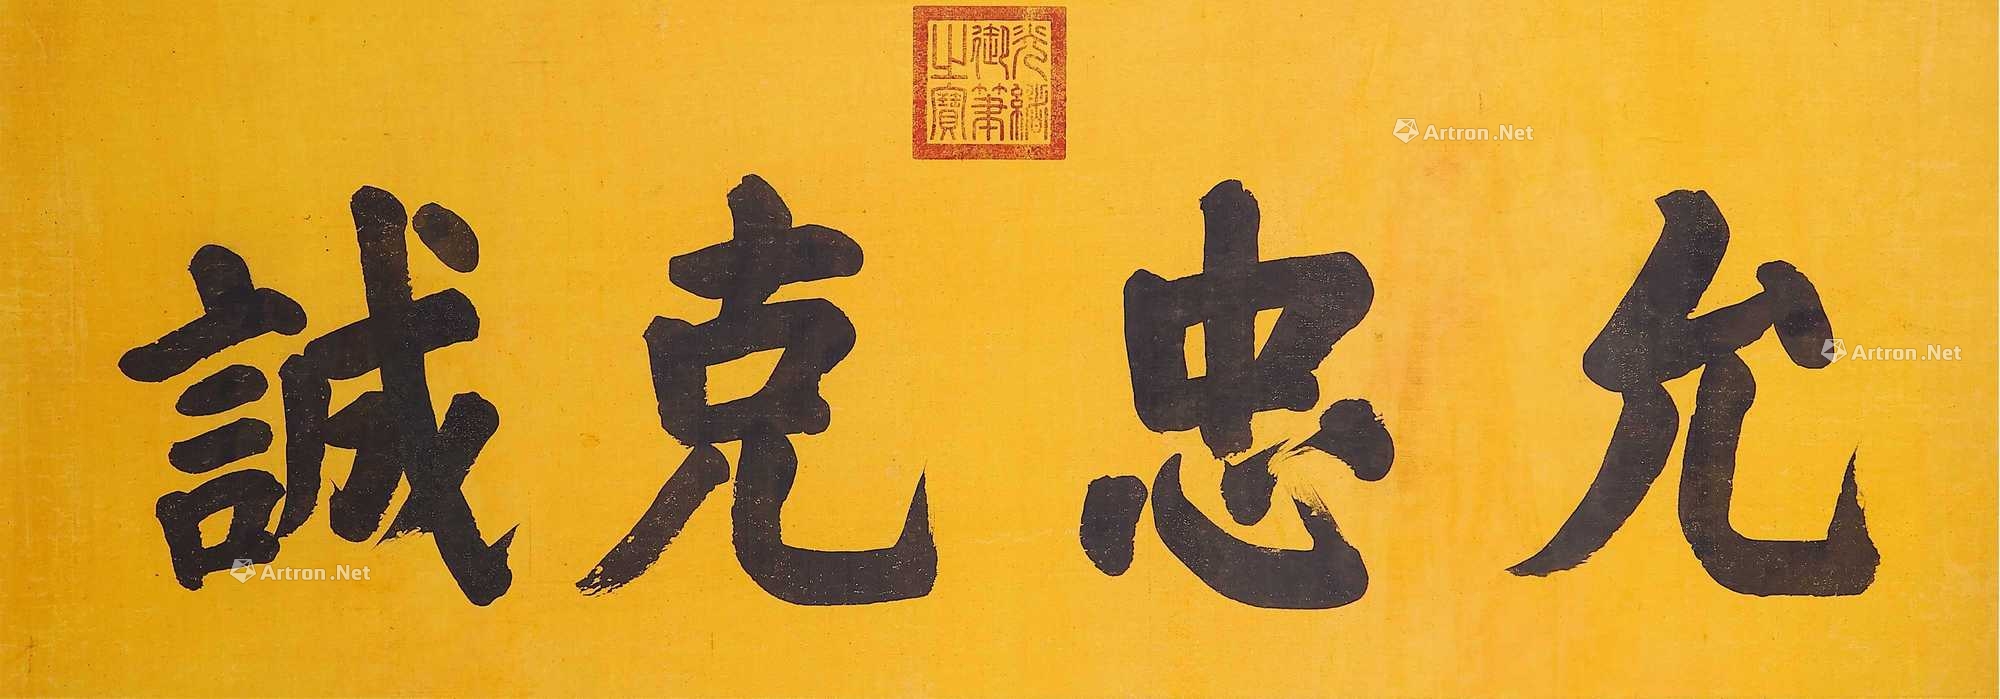 光緒御筆之寶
允忠克誠
Artron.Net
Artron.Net
Artron.Net